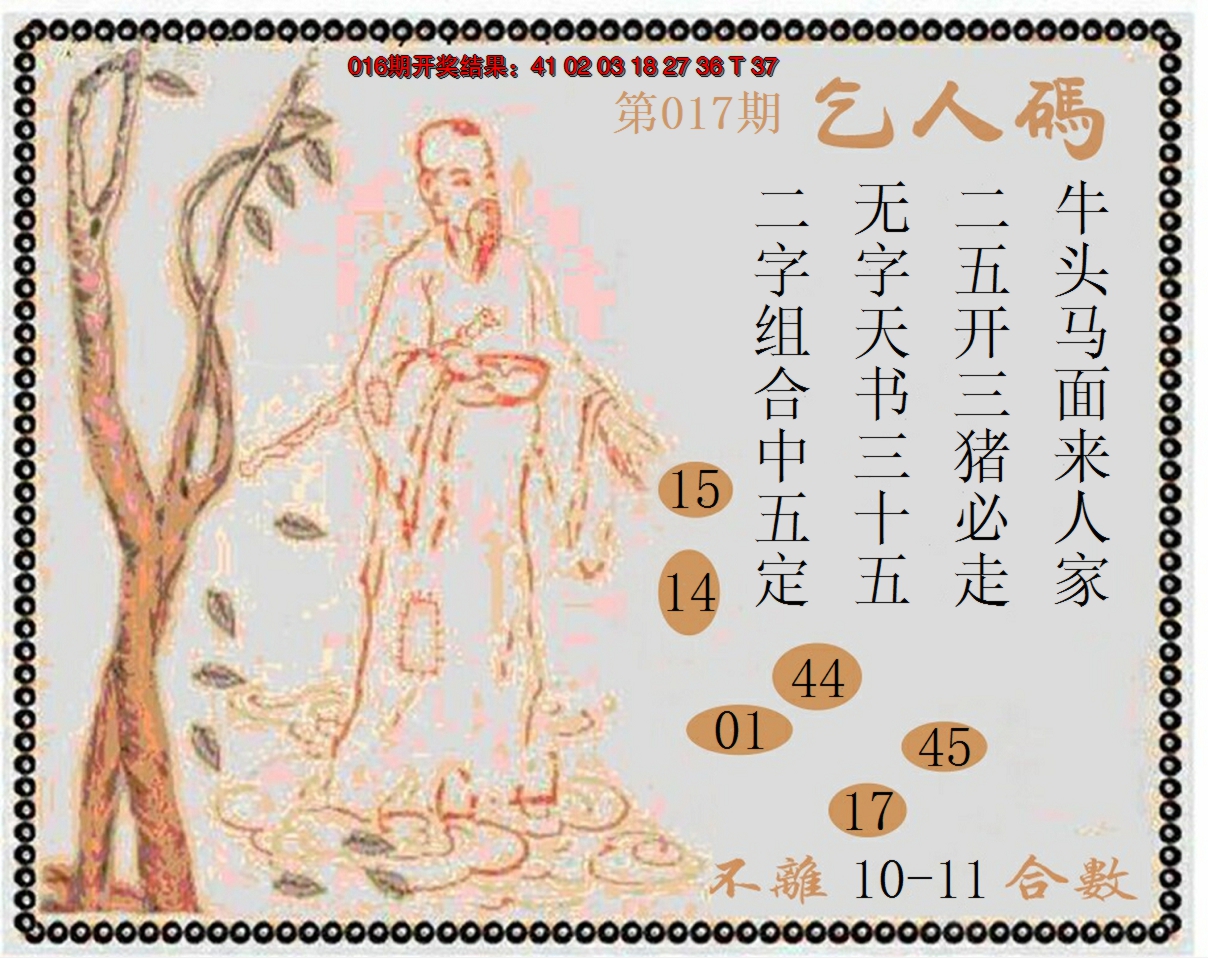 016期开奖结果：41 02 03 18 27 36 T 37
第017期 乞人碼
牛头马面来人家
二五开三猪必走
无字天书三十五
二字组合中五定
15
14
44
01
45
17
不離 10-11 合數